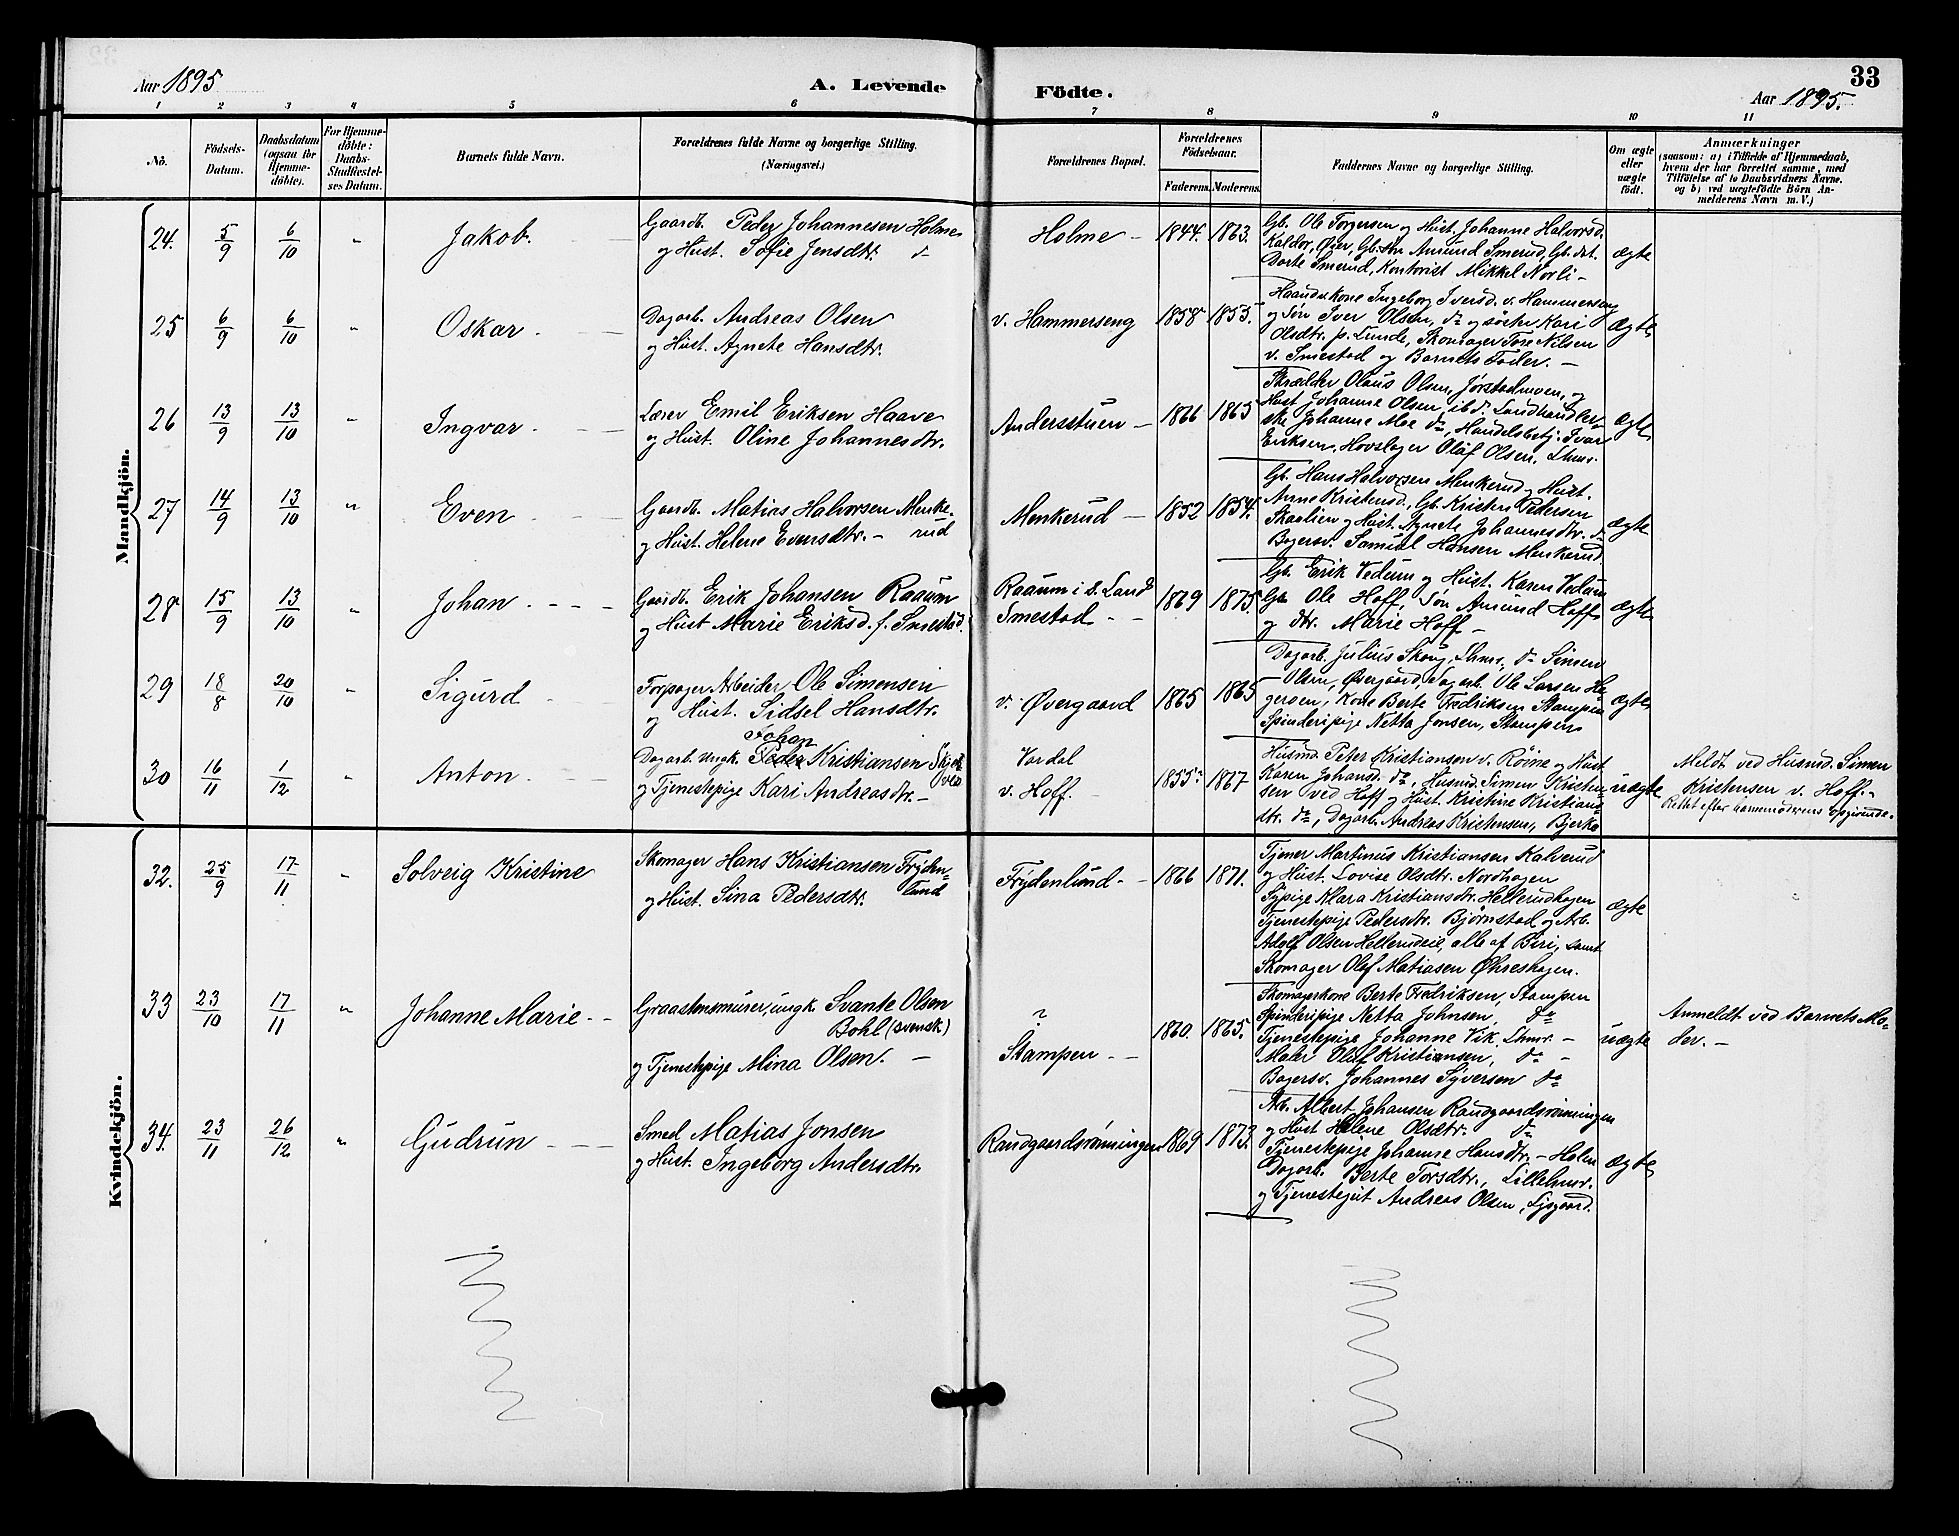 Aar 1895
A. Levende
Födte.
33
Aar 1895.
1 2 3 4 5 6 7 8 9 10 11
No.
Födsels-
Datum.
Daabsdatum
(ogsaa for
Hjemme-
döbte).
For Hjemme-
döbte:
Daabs-
Stadfæstel-
ses Datum.
Barnets fulde Navn.
Forældrenes fulde Navne og borgerlige Stilling.
(Næringsvei.)
Forældrenes Bopæl.
Forældrenes
Födselsaar.
Faderens. Moderens.
Faddernes Navne og borgerlige Stilling.
Om ægte
eller
uægte
födt.
Anmærkninger
(saasom: a) i Tilfælde af Hjemmedaab,
hvem der har forrettet samme, med
Tilföielse af to Daabsvidners Navne,
og b) ved uægtefödte Börn An-
melderens Navn m. V.)
Mandkjön.
24. 5/9 6/10 " Jakob.
Gaardb. Peder Johannesen Holme
og Hust. Sofie Jensdtr. d
Holme - 1844. 1863.
Gb. Ole Torgersen og Hust. Johanne Halvorsd.
Kaldor, Øier, Gb. Søn Amund Smerud, Gb. dtt.
Dorte Smerud, Kontorist Mikkel Norli -
ægte
25 6/9 6/10 " Oskar.
Dagarb. Andreas Olsen
og Hust. Agnete Hansdtr.
v. Hammerseng 1858 1855.
Haandv. kone Ingeborg Iversd. v. Hammerseng
og Søn Iver Olsen, do og söster Kari
Olsdtr. p. Lunde, Skomager Tore Nilsen
v. Smestad og Barnets Fader. -
ægte
26 13/9 13/10 " Ingvar.
Lærer Emil Eriksen Haave
og Hust. Oline Johannesdtr.
Andersstuen - 1866 1865
Skrædder Olaus Olsen, Jørstadmoen, og
Hust. Johanne Olsen, ibd. Landhandler-
ske Johanne Moe do, Handelsbetj. Ivar
Eriksen, Hovslager Olaf Olsen. Lhmr.
ægte
27 14/9 13/10 " Even
Gaardb. Matias Halvorsen Menke-
rud
og Hust. Helene Evensdtr. -
Menkerud - 1852 1854.
Gb. Hans Halvorsen Menkerud og Hust.
Anne Kristensd., Gb. Kristen Pedersen
Skarlien og Hust. Agnete Johannesdtr. do
Bagersv. Samuel Hansen Menkerud
ægte
28 15/9 13/10 " Johan
Gaardb. Erik Johansen Raaum
og Hust Marie Eriksd. f. Smestad.
Raaum i s. Land
Smestad 1869 1875.
Gb. Erik Vedum og Hust. Karen Vedum
Gb. Ole Hoff, Søn Amund Hoff
og dtr. Marie Hoff -
ægte
29 18/8 20/10 " Sigurd
Forpagter Arbeider Ole Simensen
og Hust. Sidsel Hansdtr.
v. Øvergaard 1865 1865
Dagarb. Julius Skoug, Lhmr., do Simen
Olsen, Øvergaard, Dagarb. Ole Larsen Ha-
geroen, Kone Berte Fredriksen Stampen
Spinderipige Netta Jonsen, Stampen
ægte
30 16/11 1/12 " Anton
Johan
Dagarb. Ungk. Peder Kristiansen
og Tjenestepige Kari Andreasdtr. -
Vardal
v. Hoff. 1855 1867
Husmd. Peter Kristiansen v. Röine og Hust
Karen Johansd. do, Husmd. Simen Kristen-
sen ved Hoff og Hust. Kristine Kristians-
dtr. do, Dagarb. Andreas Kristensen, Bjerke
uægte
Meldt ved Husmd. Simen
Kristensen v. Hoff. -
Rettet efter barnemoderens Opgivende.
Kvindekjön.
32. 25/9 17/11 " Solveig Kristine
Skomager Hans Kristiansen Frýden-
lund
og Hust. Sina Pedersdtr.
Frýdenlund - 1866 1871.
Tjener Martinus Kristiansen Kalverud
og Hust. Lovise Olsdtr. Nordhagen
Sypige Klara Kristiansdtr. Hellerudhagen
Tjenestepige Pedersdtr. Björnstad og Arb.
Adolf Olsen Hellerudeie, alle af Biri, samt
Skomager Olaf Matiasen Øhreshagen.
ægte
33 23/10 17/11 " Johanne Marie
Graastensmurer, ungk. Svante Olsen
Bohl (svensk)
og Tjenestepige Mina Olsen. -
?
Stampen 1860. 1865.
Skomagerkone Berte Fredriksen, Stampen
Spinderipige Netta Johnsen, do
Tjenestepige Johanne Vik. Lhmr. -
Maler Olaf Kristiansen, do -
Bagersv. Johannes Syversen do
uægte
Anmeldt ved Barnets Mo-
der. -
34. 23/11 26/12 " Gudrun
Smed Matias Jonsen
og Hust. Ingeborg Andersdtr.
Randgaardsrönningen 1869 1873.
Arb. Albert Johansen Randgaardsrönningen
og Hust Helene Olsdtr. do
Tjenestepige Johanne Hansdtr. - Holen
Dagarb. Berte Torsdtr., Lillehmr.
og Tjenestegut Andreas Olsen, Lysgaard.
ægte